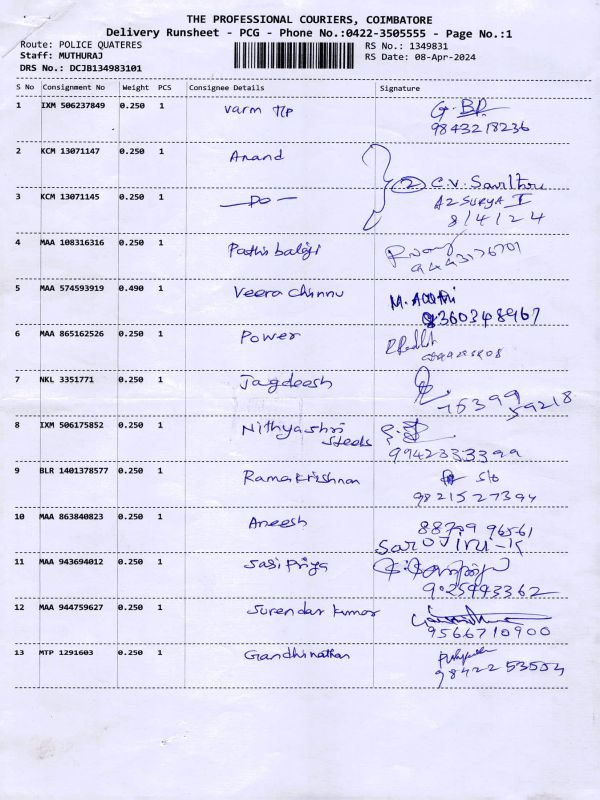 THE PROFESSIONAL COURIERS, COIMBATORE
Delivery Runsheet - PCG - Phone No.:0422-3505555 - Page No.:1
Route: POLICE QUATERES RS No.: 1349831
Staff: MUTHURAJ RS Date: 08-Apr-2024
DRS No.: DCJB134983101
S No Consignment No Weight PCS Consignee Details Signature
1 IXM 506237849 0.250 1 Varm G. BP
9843218236
2 KCM 13071147 0.250 1 Anand
② C.V.
3 KCM 13071145 0.250 1 —Do— A2 SURYA I
8/4/24
4 MAA 108316316 0.250 1 Pathis balaji
9443176701
5 MAA 574593919 0.490 1 Veera chinnu M.
9360348967
6 MAA 865162526 0.250 1 Power
7 NKL 3351771 0.250 1 Jagdeesh
75399
59218
8 IXM 506175852 0.250 1 Nithyashri
Steels
9942333399
9 BLR 1401378577 0.250 1 Ramakrishnan S/o
9821527394
10 MAA 863840823 0.250 1 Aneesh 88709 96561
11 MAA 943694012 0.250 1 Sasi Priya
9.25443362
12 MAA 944759627 0.250 1 Surendar kumar
9566710900
13 MTP 1291603 0.250 1 Gandhinathan
98422 53504